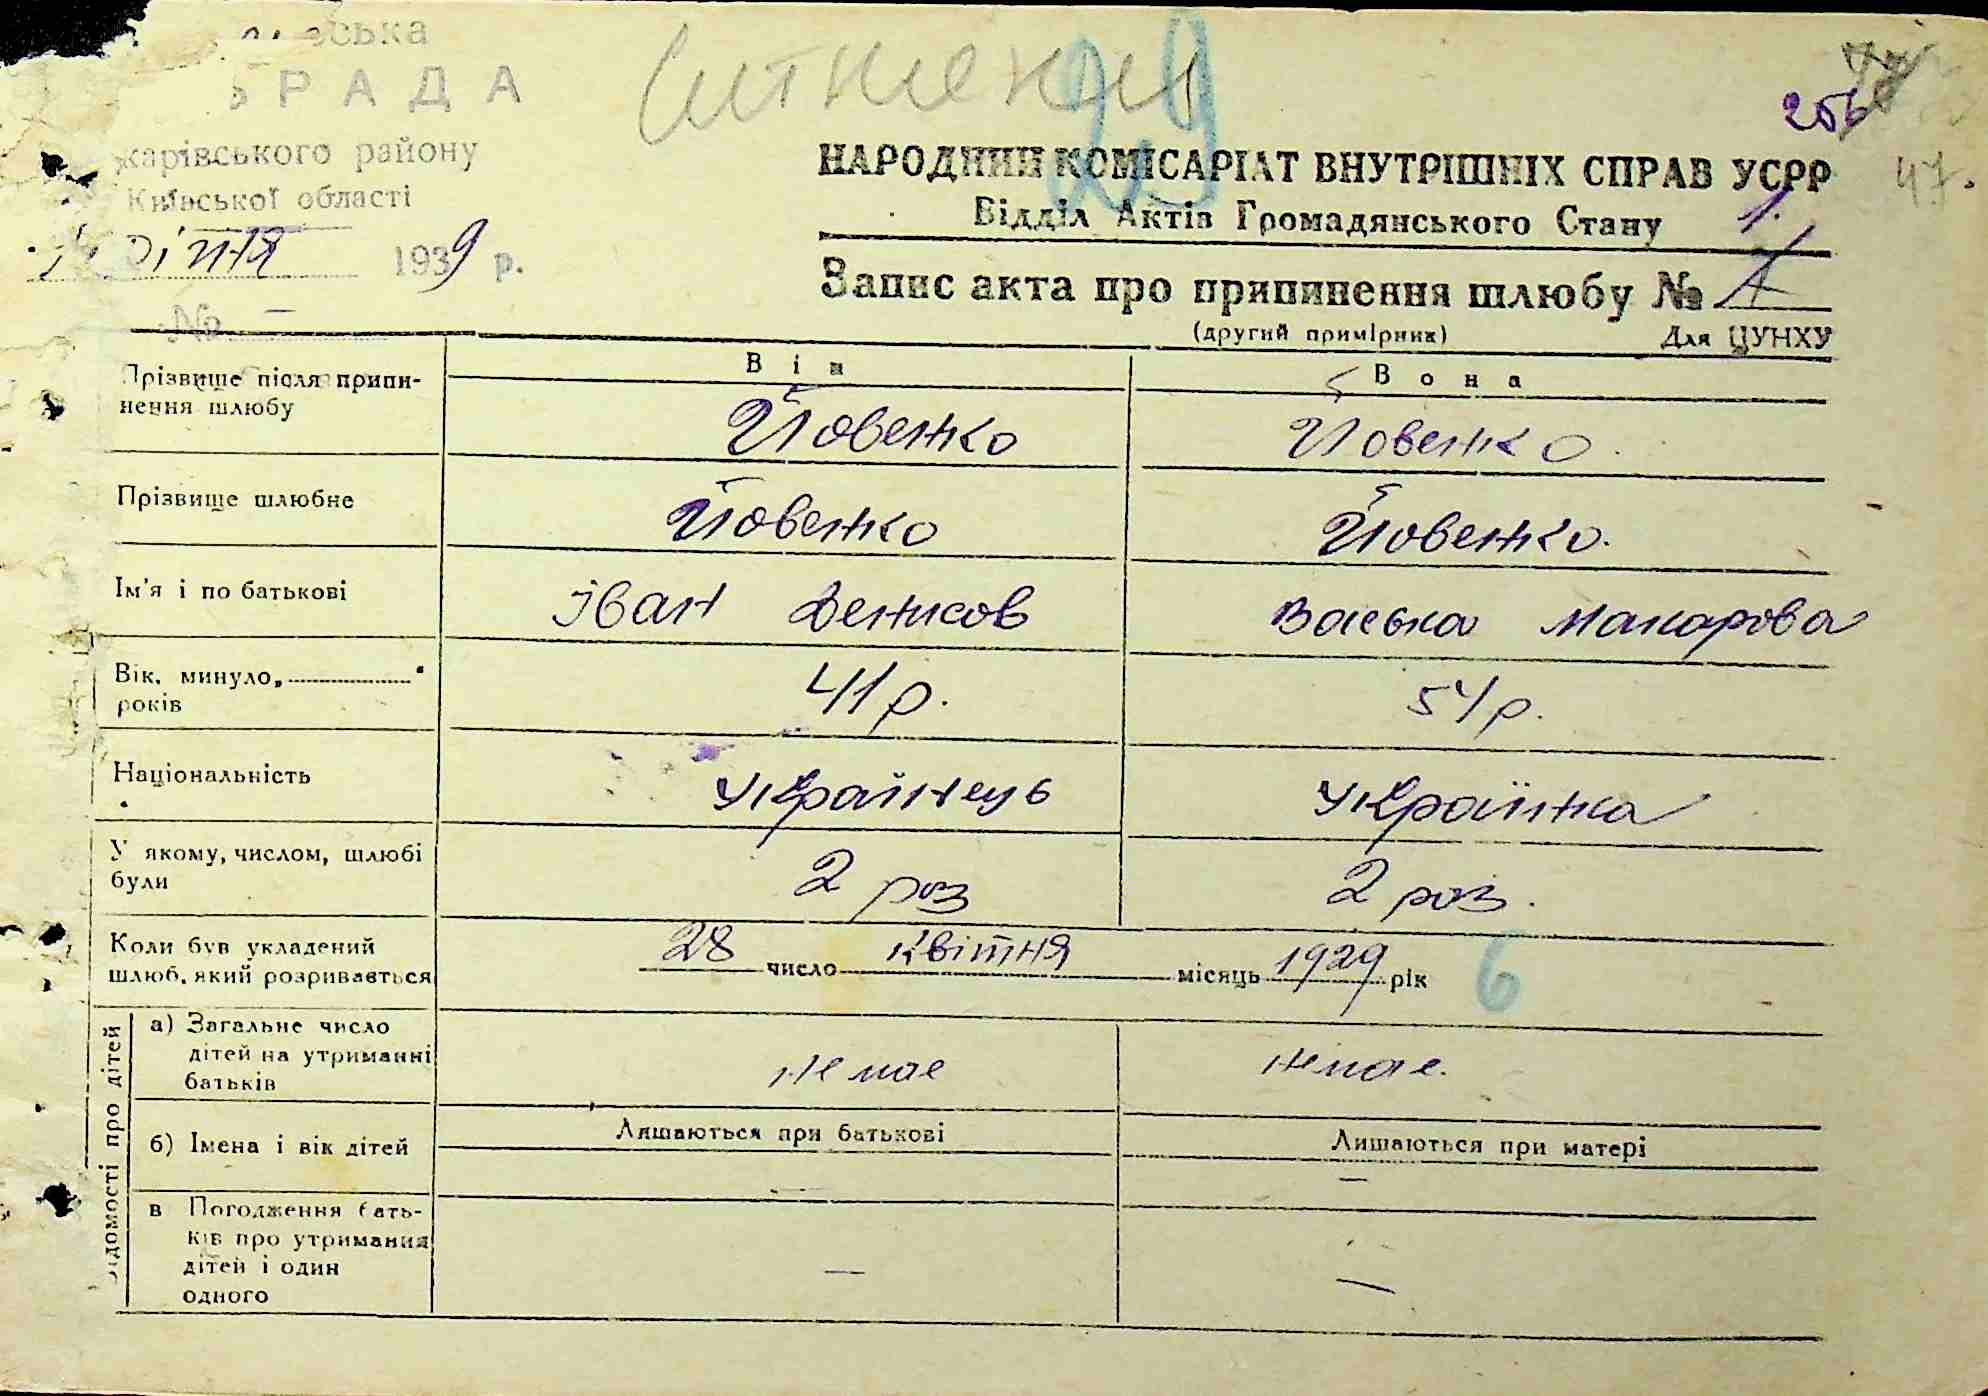 РАДА
карівського району
Київської області
1939 р.
№ —
29
47.
НАРОДНИЙ КОМІСАРІАТ ВНУТРІШНІХ СПРАВ УСРР
Відділ Актів Громадянського Стану
Запис акта про припинення шлюбу № 1
(другий примірник) Для ЦУНХУ
Він Вона
Прізвище після припи-
нення шлюбу
Йовенко Йовенко.
Прізвище шлюбне Йовенко Йовенко.
Ім'я і по батькові Іван Денисов Васька Макарова
Вік. минуло „ "
років
41 р. 54 р.
Національність Українець Українка
У якому, числом, шлюбі
були
2 раз 2 раз.
Коли був укладений
шлюб, який розривається
28 число квітня місяць 1929 рік 6
ідомості про дітей
а) Загальне число
дітей на утриманні
батьків
немає немає.
б) Імена і вік дітей
Лишаються при батькові Лишаються при матері
— —
в Погодження бать-
ків про утримання
дітей і один
одного
— —